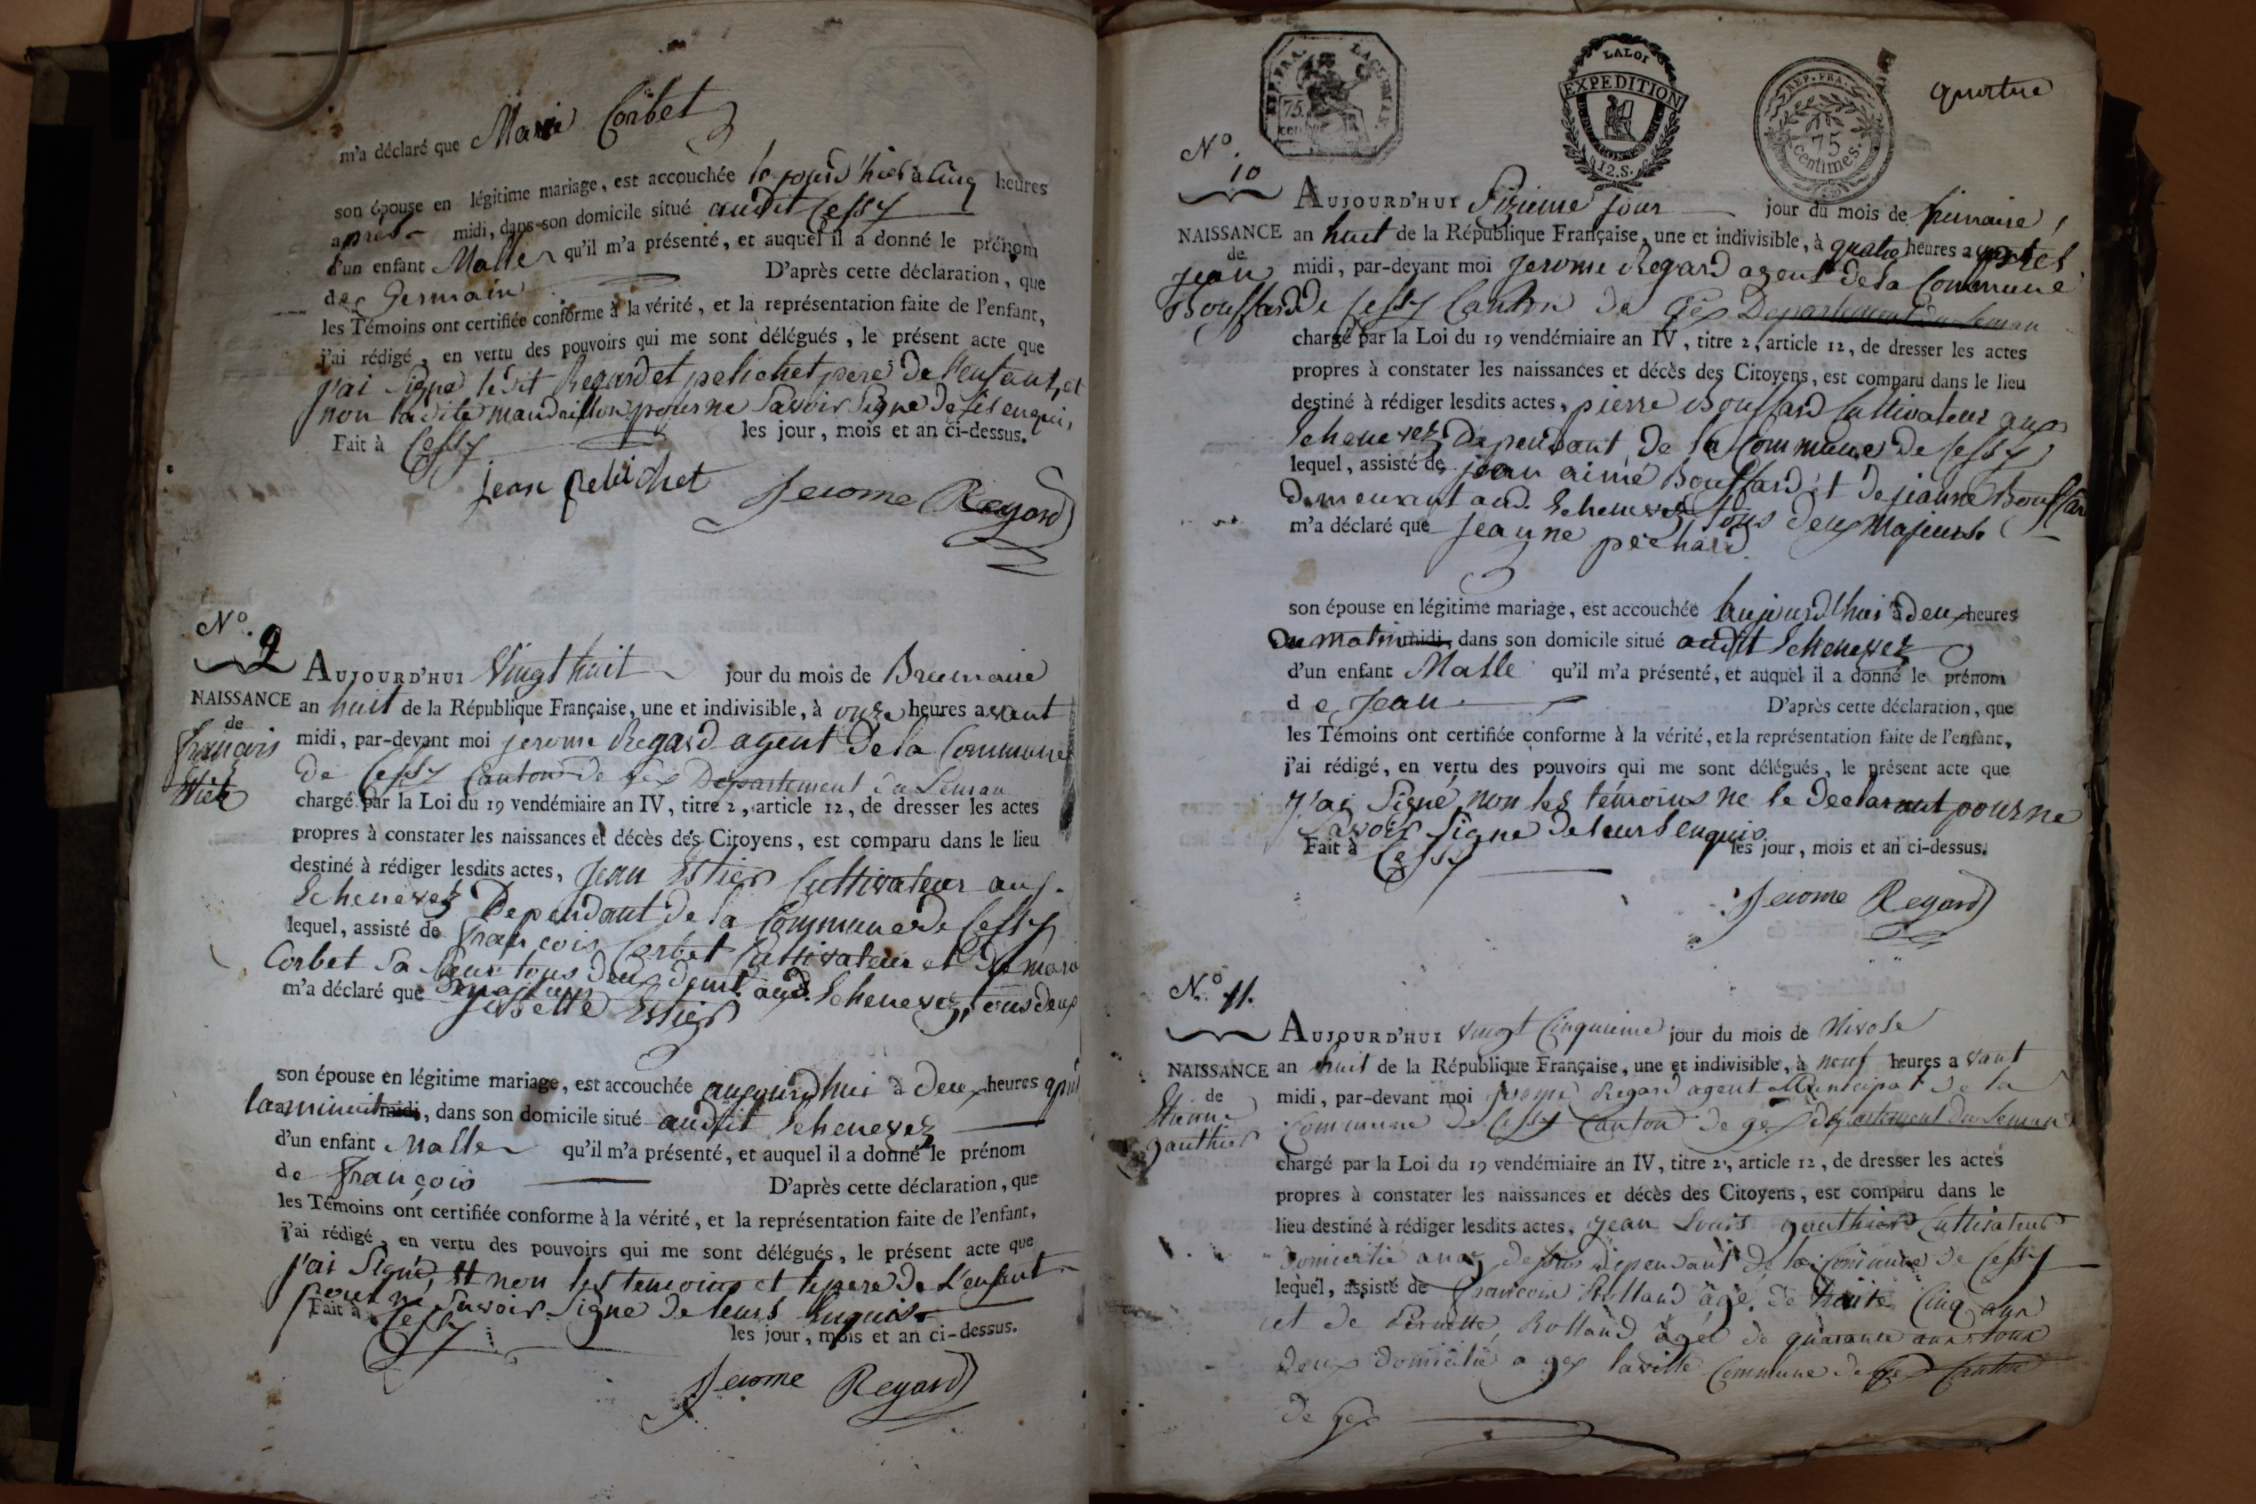 m'a déclaré que Marie Corbet
son épouse en légitime mariage, est accouchée le jourd'hier à cinq heures
après midi, dans son domicile situé audit Cessy
d'un enfant Malle qu'il m'a présenté, et auquel il a donné le prénom
de Germain D'après cette déclaration, que
les Témoins ont certifiée conforme à la vérité, et la représentation faite de l'enfant,
j'ai rédigé, en vertu des pouvoirs qui me sont délégués, le présent acte que
j'ai signé ledit Regard et pelichet pere de l'enfant, et
non ladite mandrillon pour ne savoir signe de ce enquis,
Fait à Cessy les jour, mois et an ci-dessus.
jean pelichet Jerome Regard
N.o 9
AUJOURD'HUI Vingt huit jour du mois de Brumaire
NAISSANCE an huit de la République Française, une et indivisible, à onze heures avant
de
françois
midi, par-devant moi jerome Regard agent de la Commune
de Cessy Canton de gex Departement du Leman
chargé par la Loi du 19 vendémiaire an IV, titre 2, article 12, de dresser les actes
propres à constater les naissances et décès des Citoyens, est comparu dans le lieu
destiné à rédiger lesdits actes, jean Estier Cultivateur aux
Echenevez Dependant de la Commune de Cessy
lequel, assisté de françois Corbet Cultivateur et de
Corbet sa tous deux demt. aud. Echenevez, tous deux
majeurs
m'a déclaré que josette Estier
son épouse en légitime mariage, est accouchée aujourd'hui à deux heures
la minuit midi, dans son domicile situé audit Echenevez
d'un enfant Malle qu'il m'a présenté, et auquel il a donné le prénom
de françois D'après cette déclaration, que
les Témoins ont certifiée conforme à la vérité, et la représentation faite de l'enfant,
j'ai rédigé, en vertu des pouvoirs qui me sont délégués, le présent acte que
j'ai signé, et non les temoins et le pere de l'enfant
pour ne savoir signe de leurs enquis
Fait à Cessy les jour, mois et an ci-dessus.
Jerome Regard
REP. FRA.
75
cent
LALOI
EXPEDITION
12. S.
REP. FRA.
75
centimes.
N.o 10
AUJOURD'HUI Sizieme jour jour du mois de frimaire
NAISSANCE an huit de la République Française, une et indivisible, à quatre heures après
de
jean
Bouffard
midi, par-devant moi jerome Regard agent de la Commune
de Cessy Canton de Gex Departement du Leman
chargé par la Loi du 19 vendémiaire an IV, titre 2, article 12, de dresser les actes
propres à constater les naissances et décès des Citoyens, est comparu dans le lieu
destiné à rédiger lesdits actes, pierre Bouffard Cultivateur aux
Echenevez Dependant de la Commune de Cessy
lequel, assisté de jean aimé Bouffard et de jeanne Bouffard
Demeurant aud. Echenevez, tous deux majeurs
m'a déclaré que jeanne pechard
son épouse en légitime mariage, est accouchée aujourd'hui à deux heures
du matin midi, dans son domicile situé audit Echenevez
d'un enfant Malle qu'il m'a présenté, et auquel il a donné le prénom
de Jean D'après cette déclaration, que
les Témoins ont certifiée conforme à la vérité, et la représentation faite de l'enfant,
j'ai rédigé, en vertu des pouvoirs qui me sont délégués, le présent acte que
j'ai signé non les témoins ne le declarant pour ne
savoir signe de leurs enquis
Fait à Cessy les jour, mois et an ci-dessus.
Jerome Regard
N.o 11.
AUJOURD'HUI vingt cinquieme jour du mois de Nivose
NAISSANCE an huit de la République Française, une et indivisible, à neuf heures avant
de
gauthier
midi, par-devant moi jerome Regard agent Municipal de la
Commune de Cessy Canton de gex departement du Leman
chargé par la Loi du 19 vendémiaire an IV, titre 2, article 12, de dresser les actes
propres à constater les naissances et décès des Citoyens, est comparu dans le
lieu destiné à rédiger lesdits actes, jean Louis gauthier Cultivateur
Domicilié dependant de la Commune de Cessy
lequel, assisté de francois Rolland âgé de trente cinq ans
et de Pernette Rolland âgée de quarante ans tous
deux domicilié a gex la ville Commune de gex Canton
de gex